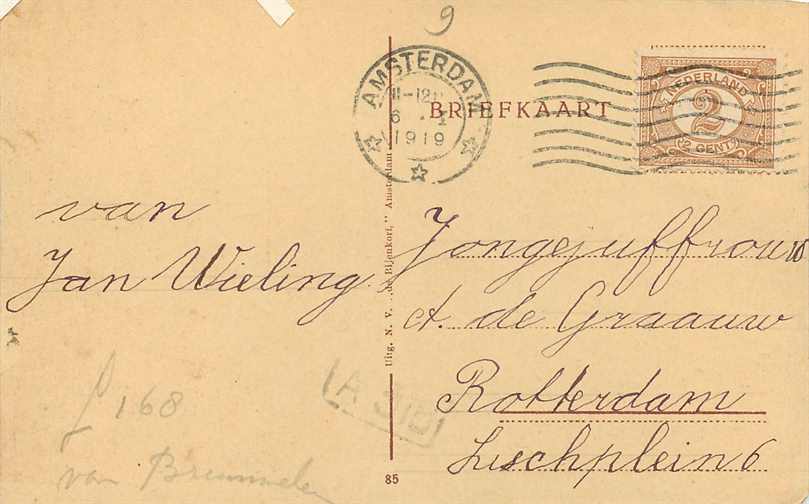 9
AMSTERDAM
11-12
6 . I
1919
BRIEFKAART
NEDERLAND
2
2 CENT
van
Jan Wieling
Jongejuffrouw
A. de Graauw
Rotterdam
85
ƒ 168
Uitg. N. V. „de Bijenkorf," Amsterdam